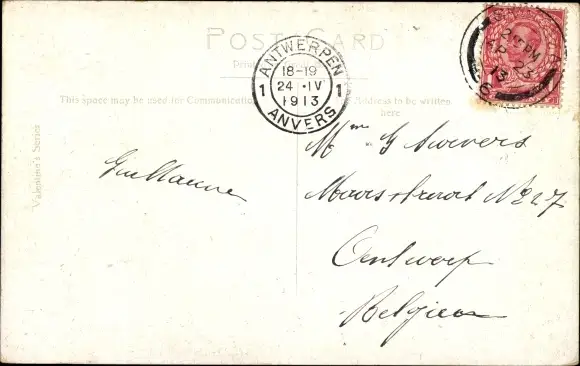 POST CARD
ANTWERPEN
18-19
24 IV
1913
1 1
ANVERS
2 15 PM
AP 23
13
This space may be used for Communication
Address to be written here
Valentine's Series
Guillaume
Mme G Swevers
N° 27
Antwerp
Belgien